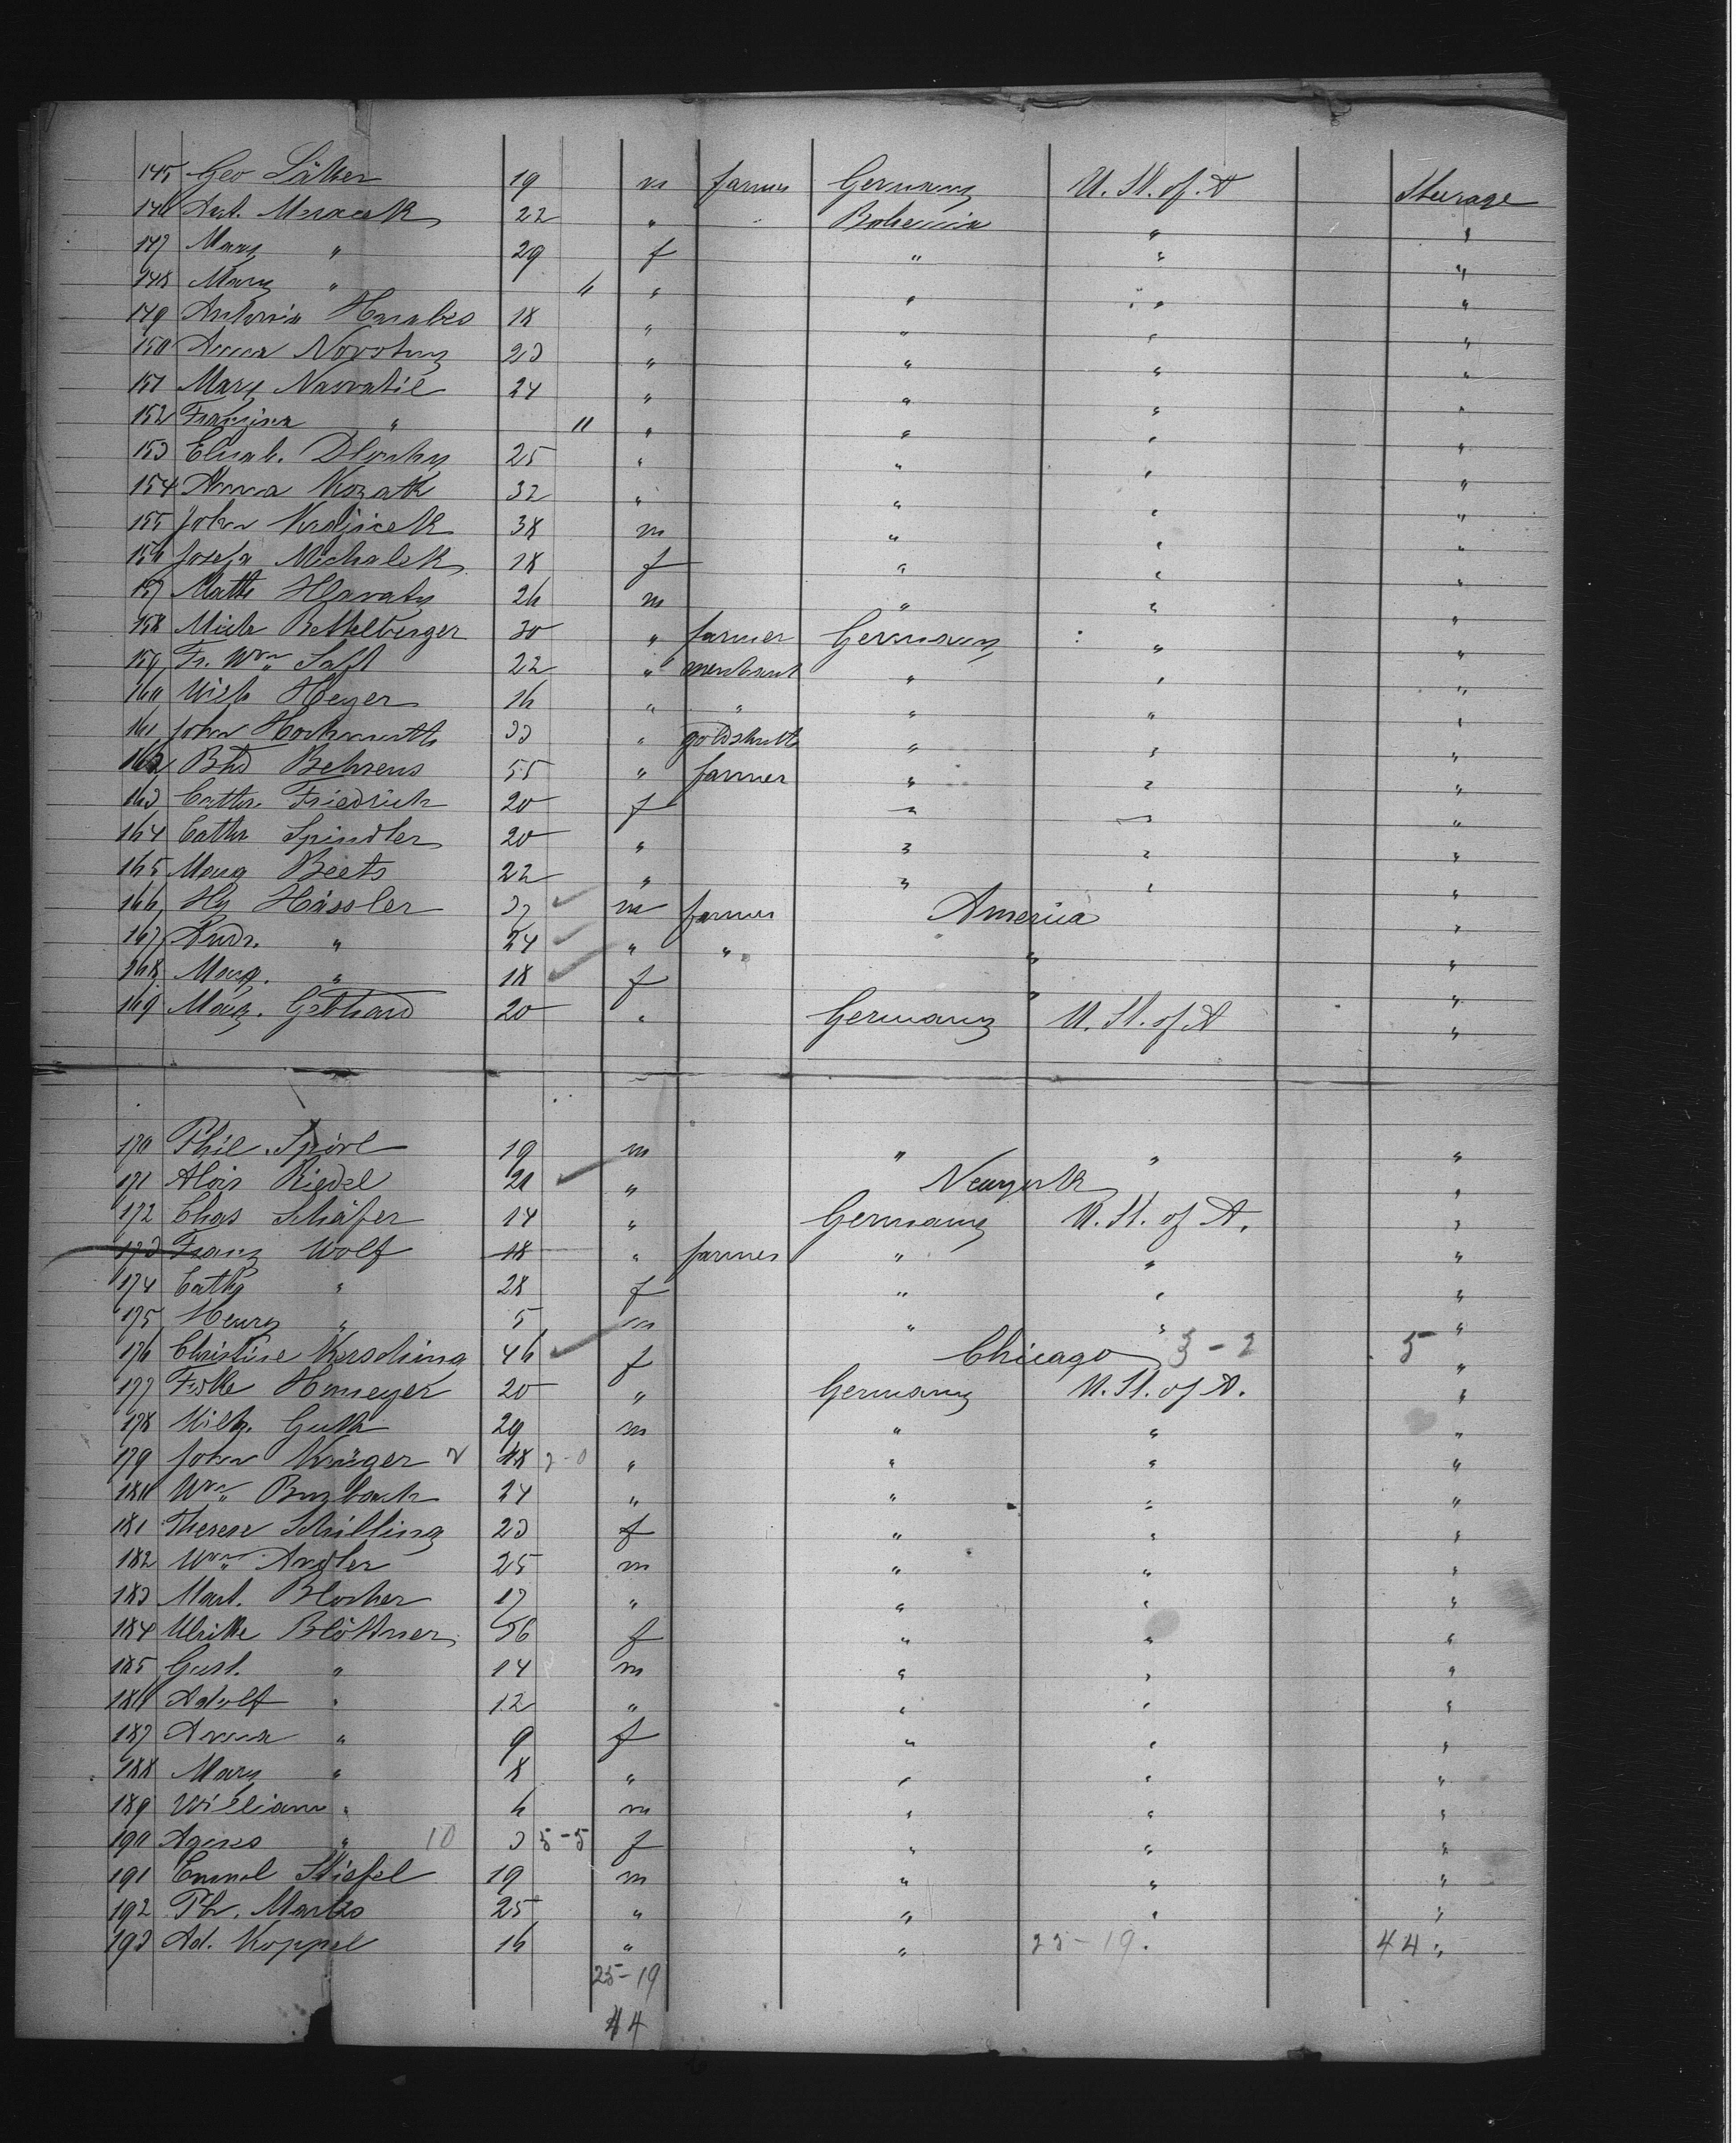 145 Geo 19 m farmer Germany U. St. of A Steerage
146 Ant. 22 " Bohemia " "
147 Mary " 29 f " " "
148 Mary " " " " " "
149 Antonia 18 " " " "
150 Anna Novotny 23 " " " "
151 Mary Navratil 24 " " " "
152 " " " " " "
153 Elisab. Dlouhy 25 " " " "
154 Anna Kozak 32 " " " "
155 John Krajicek 38 m " " "
156 Josefa Michalek 18 f " " "
157 Matth Hlavaty 26 m " " "
158 Mich Bettelberger 30 " farmer Germany " "
159 Fr. Wm Saft 22 " " "
160 Wilh Heyer 16 " " " " "
161 John 33 " " " "
162 Bhd Behrens 55 " farmer " " "
163 Cathr. Friedrich 20 f " " "
164 Cathr Spindler 20 " " " "
165 Marg Beets 22 " " " "
166 Hy Hässler m farmer America "
167 Andr. " 24 " " " "
168 Marg. " 18 f " "
169 Marg. Gebhard 20 " Germany U. St. of A "
170 Phil. 19 m " " "
171 Alois Riedel 21 " Newyork "
172 Chas Schäfer 14 " Germany U. St. of A. "
173 Franz Wolf 18 " farmer " " "
174 Cath " 28 f " " "
175 Henry " 5 m " " "
176 Christine 46 f Chicago 3-2 5 "
177 Hmeyer 20 " Germany U. St. of A. "
178 Wilh. Guth 29 m " " "
179 John Krüger 48 " " " "
180 Wm 24 " " " "
181 Therese Schilling 23 f " " "
182 Wm 25 m " " "
183 Mart. Blocher 17 " " " "
184 Ulrike Blöttner 56 f " " "
185 Gust. " 14 m " " "
186 Adolf " 12 " " " "
187 Anna " 9 f " " "
188 Mary " 8 " " " "
189 William " 6 m " " "
190 Agnes " 10 3 5-5 f " " "
191 Emmel Stiefel 19 m " " "
192 Ph. Marks 25 " " " "
193 Ad. Koppel 16 " " 25-19. 44 "
25-19
44